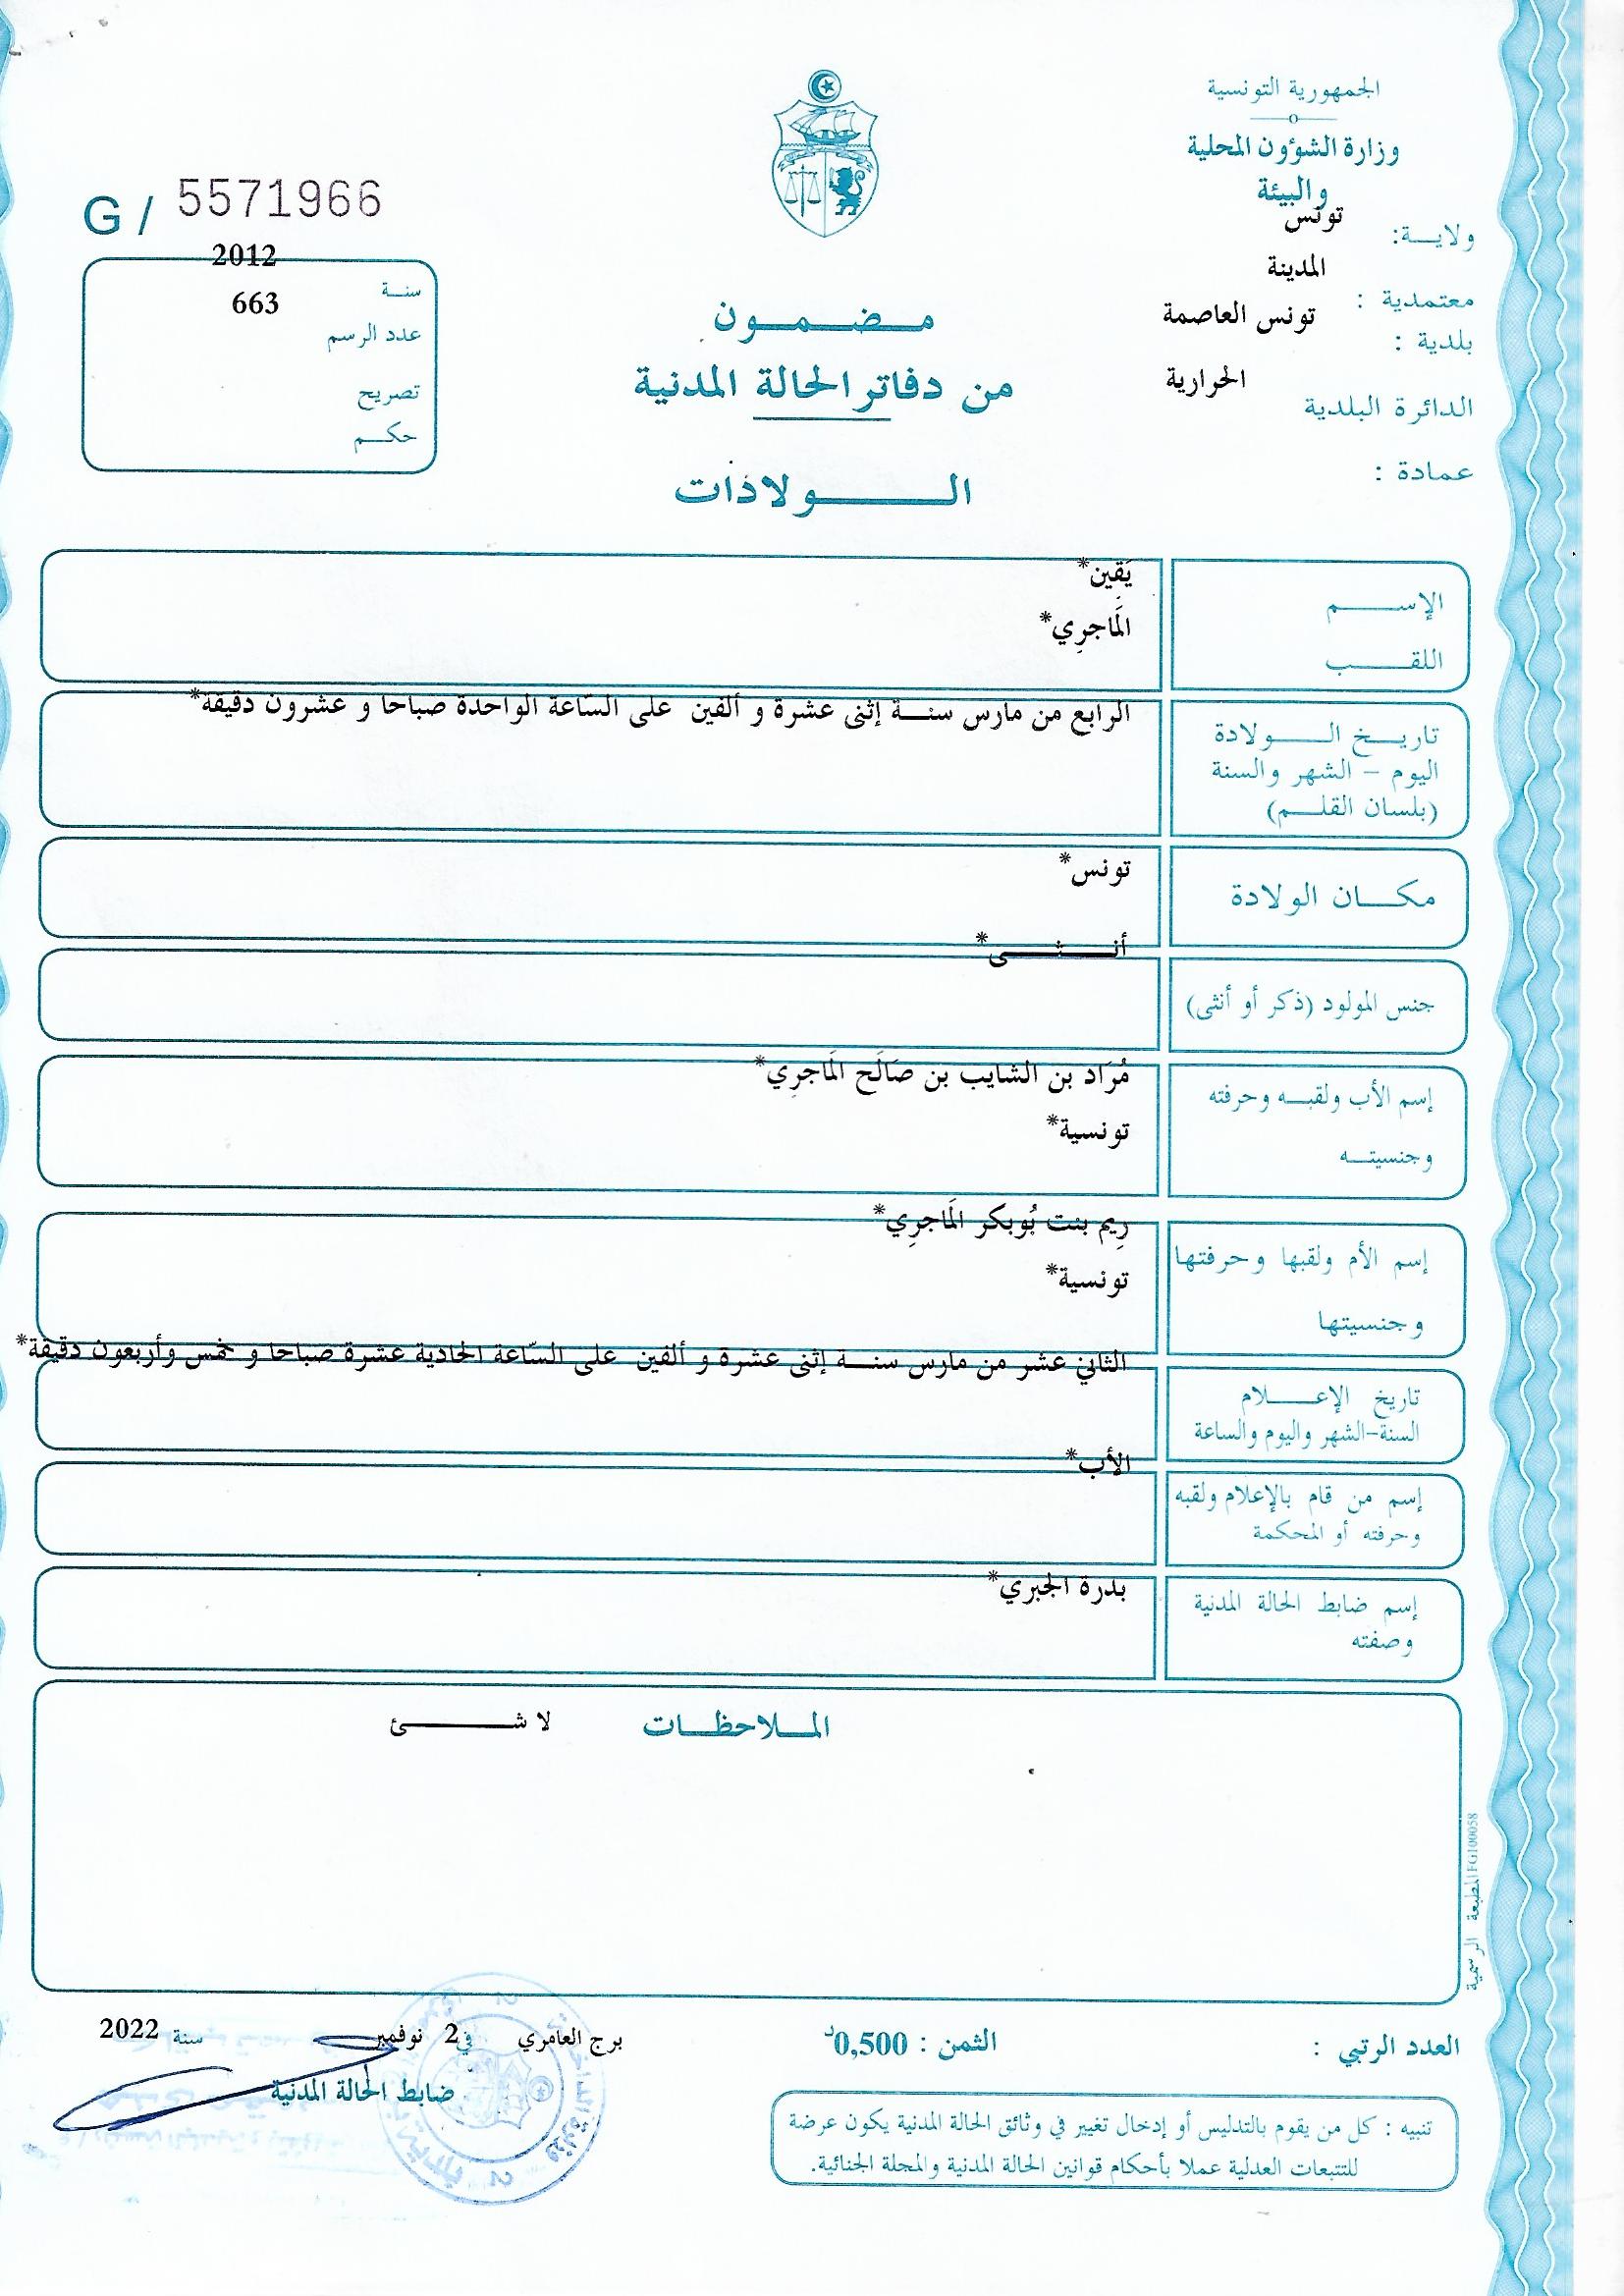 الجمهورية التونسية
وزارة الشؤون المحلية
والبيئة
ولايــة: تونس
معتمدية : المدينة
بلدية : تونس العاصمة
الدائرة البلدية الحرارية
عمادة :
G / 5571966
سنة 2012
عدد الرسم 663
تصريح
حكم
مضمون
من دفاتر الحالة المدنية
الولادات
الإسم يَقِين*
اللقب المَاجِرِي*
تاريخ الولادة الرابع من مارس سنة إثنى عشرة و ألفين على السّاعة الواحدة صباحا و عشرون دقيقة*
اليوم - الشهر والسنة
(بلسان القلم)
مكان الولادة تونس*
جنس المولود (ذكر أو أنثى) أنثى*
إسم الأب ولقبه وحرفته مُرَاد بن الشايب بن صَالَح المَاجرِي*
وجنسيته تونسية*
إسم الأم ولقبها وحرفتها رِيم بنت بُوبكر المَاجرِي*
وجنسيتها تونسية*
تاريخ الإعلام الثاني عشر من مارس سنة إثنى عشرة و ألفين على السّاعة الحادية عشرة صباحا و خمس وأربعون دقيقة*
السنة-الشهر واليوم والساعة
إسم من قام بالإعلام ولقبه الأب*
وحرفته أو المحكمة
إسم ضابط الحالة المدنية بدرة الجبري*
وصفته
الملاحظات لا شئ
المطبعة الرسمية FG100058
العدد الرتبي : الثمن : 0,500د
برج العامري في 2 نوفمبر سنة 2022
ضابط الحالة المدنية
تنبيه : كل من يقوم بالتدليس أو إدخال تغيير في وثائق الحالة المدنية يكون عرضة
للتتبعات العدلية عملا بأحكام قوانين الحالة المدنية والمجلة الجنائية.